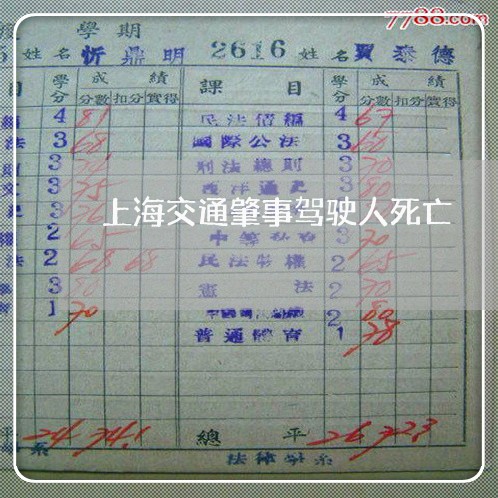 7788.com
學期
姓名 忻鼎明 2616 姓名 賈泰德
目 學分 成績 課目 學分 成績
分數 扣分 實得 分數 扣分 實得
4 81 民法債編 4 67
法 3 68 國際公法 3 60
3 刑法總則 3 70
3 75 西洋通史 3 80
上海交通肇事驾驶人死亡
2 65 3 70
法 2 68 68 民法物權 2 65
3 80 憲法 2 70
1 70 2 80
普通體育 1 78
平 24 74.1 總平 26 72.3
系 法律學系